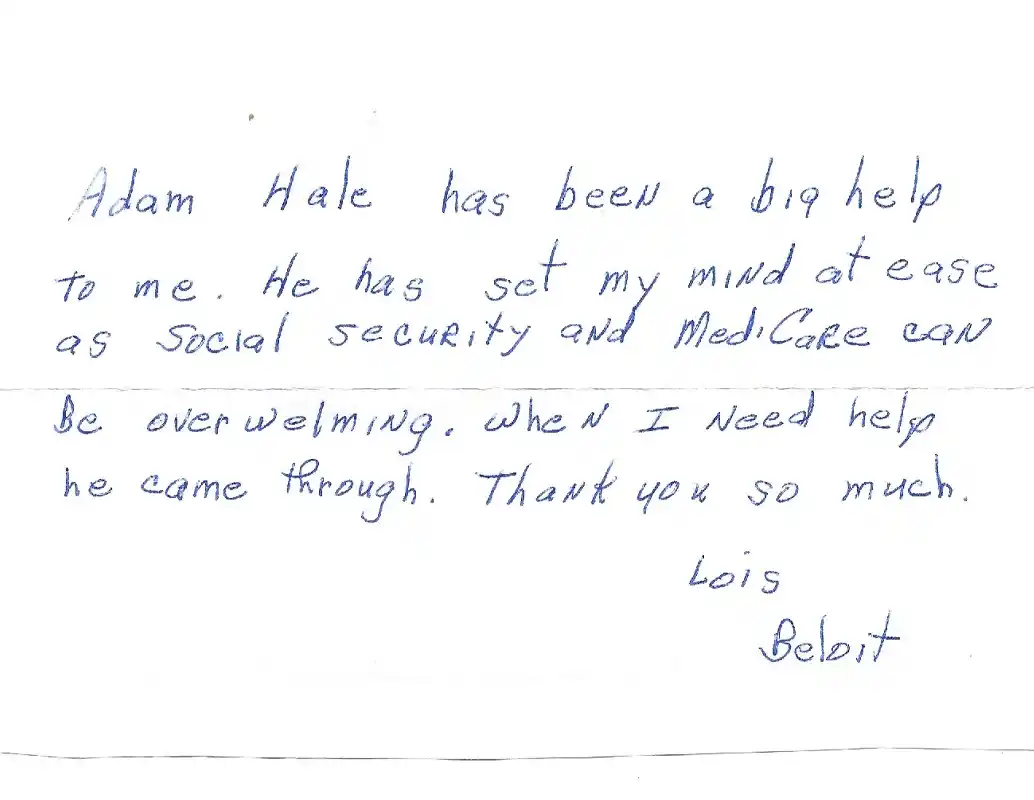 Adam Hale has been a big help
to me. He has set my mind at ease
as Social security and MediCare can
Be overwelming. When I Need help
he came through. Thank you so much.
Lois
Beloit